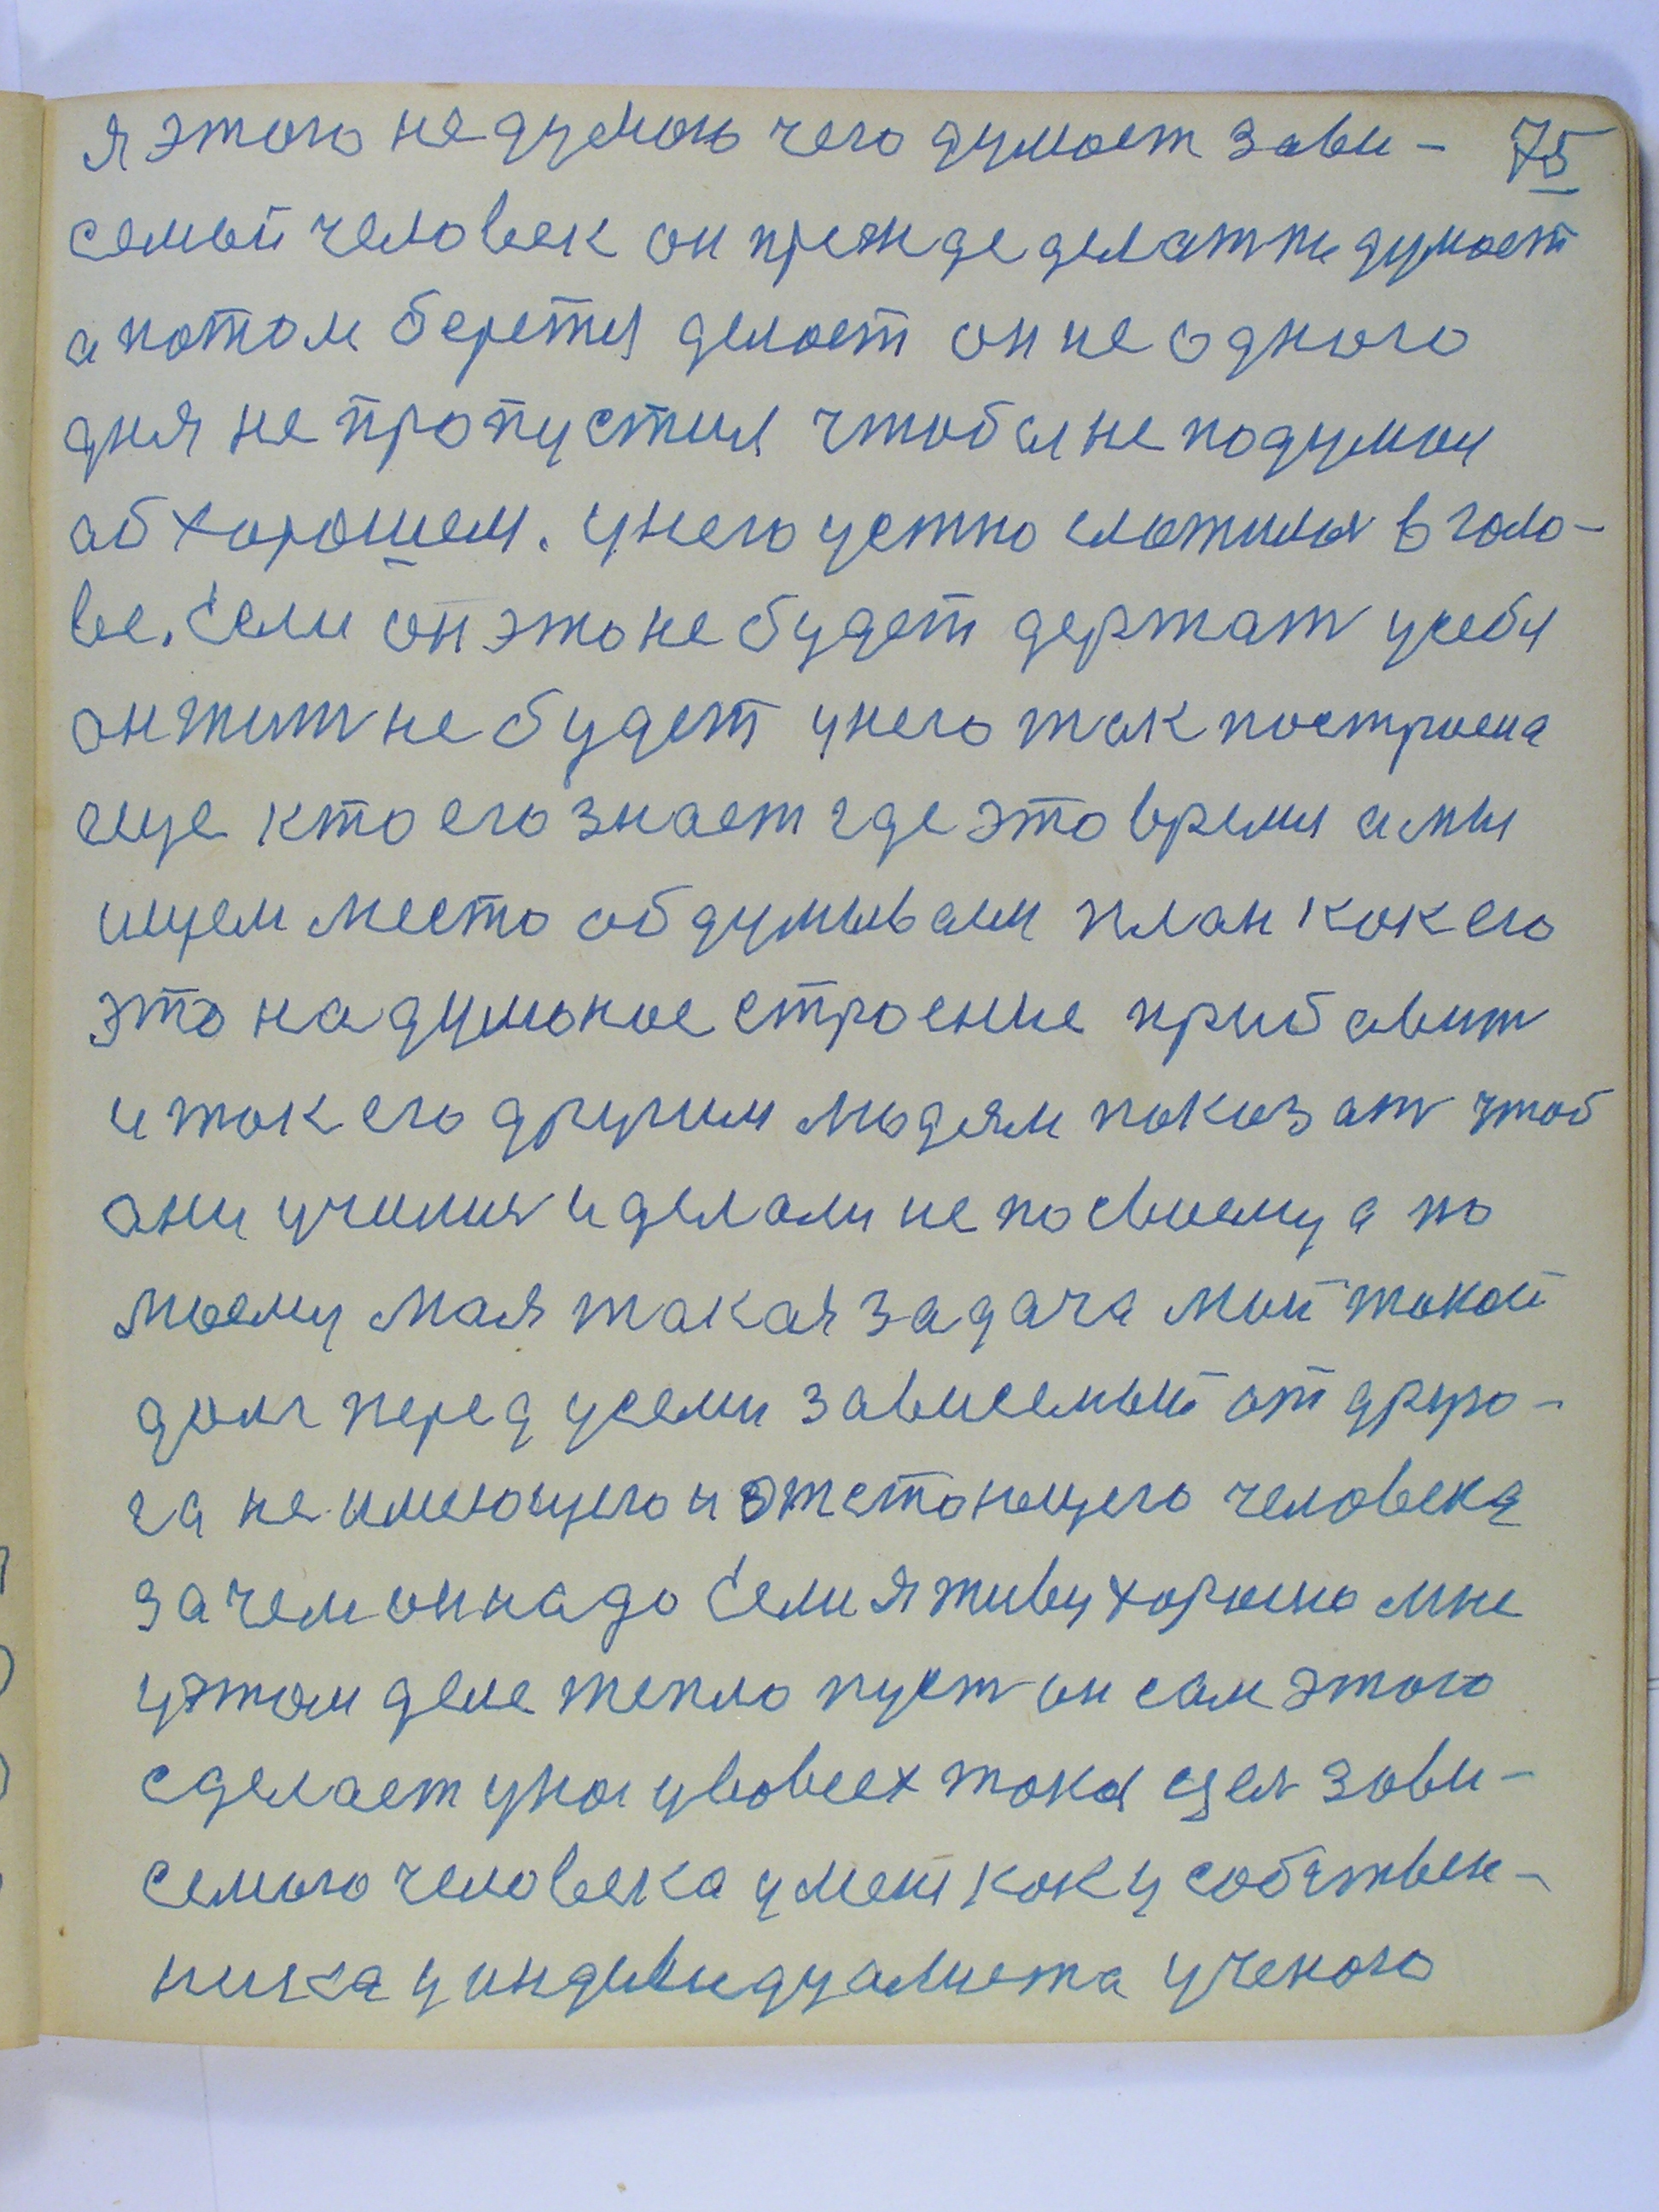 я этого не думаю чего думает зави- 75
семый человек он прежде делатти думает
а потом беретця делает он не одного
дня не пропустил чтобы не подумал
аб хорошем. у него устно сложилось в голо-
ве. Если он это не будет держать усебя
он жить не будет у него так построена
еще кто его знает где это время а мы
ищем место обдумываем план как его
это надуманое строение прибавить
и так его другим людям показать чтоб
они училися и делали не посвоему а по
моему мая такая задача мой такой
долг перед усеми зависемый от друго-
га не имеющего ножстоющего человека
зачем он надо Если я живу хорошо мне
уэтом деле тепло пусть он сам этого
сделает у на уввовсех такая цель зави-
семого человека умет как у собствен-
ника у индивидуалиста ученого